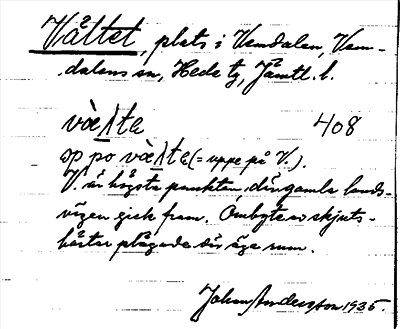 Våttet, plats i Vemdalen, Vem-
dalens sn, Hede tg, Jämtl. l.
408
(= uppe på V.).
V. är högsta punkten, där gamla lands-
vägen gick fram. Ombyte av skjuts-
hästar plägade där äga rum.
Johan Andersson 1935.